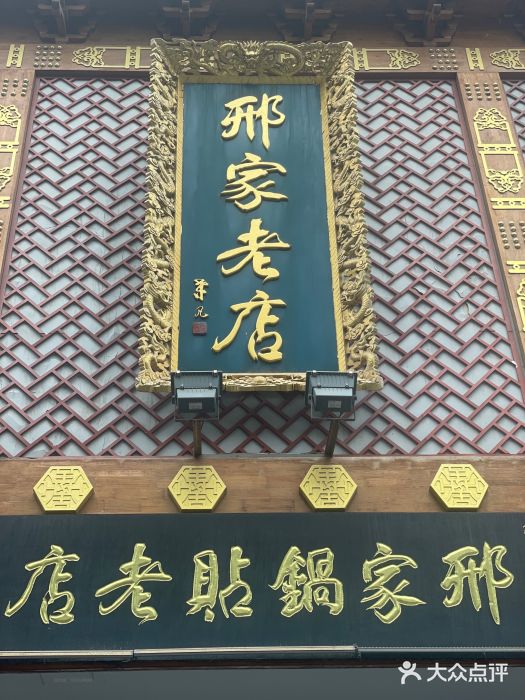 邢家老店
邢家鍋貼老店
大众点评